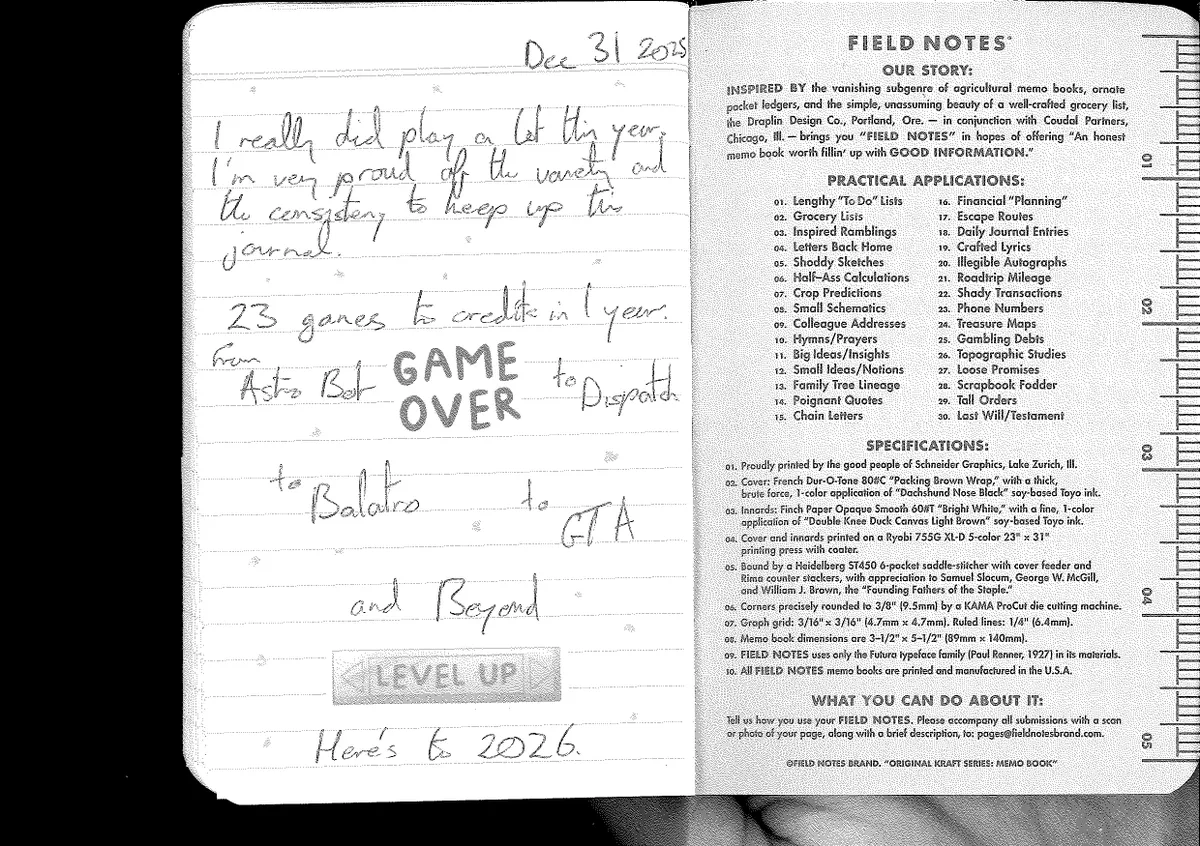 Dec 31 2025
I really did play a lot this year.
I'm very proud off the variety and
the consisteny to keep up this
journal.
23 games to credits in 1 year.
from
Astro Bot
GAME
OVER
to Dispatch
to Balatro
to GTA
and Beyond
LEVEL UP
Here's to 2026.
FIELD NOTES®
OUR STORY:
INSPIRED BY the vanishing subgenre of agricultural memo books, ornate
pocket ledgers, and the simple, unassuming beauty of a well-crafted grocery list,
the Draplin Design Co., Portland, Ore. — in conjunction with Coudal Partners,
Chicago, Ill. — brings you "FIELD NOTES" in hopes of offering "An honest
memo book worth fillin' up with GOOD INFORMATION."
PRACTICAL APPLICATIONS:
01. Lengthy "To Do" Lists
02. Grocery Lists
03. Inspired Ramblings
04. Letters Back Home
05. Shoddy Sketches
06. Half–Ass Calculations
07. Crop Predictions
08. Small Schematics
09. Colleague Addresses
10. Hymns/Prayers
11. Big Ideas/Insights
12. Small Ideas/Notions
13. Family Tree Lineage
14. Poignant Quotes
15. Chain Letters
16. Financial "Planning"
17. Escape Routes
18. Daily Journal Entries
19. Crafted Lyrics
20. Illegible Autographs
21. Roadtrip Mileage
22. Shady Transactions
23. Phone Numbers
24. Treasure Maps
25. Gambling Debts
26. Topographic Studies
27. Loose Promises
28. Scrapbook Fodder
29. Tall Orders
30. Last Will/Testament
SPECIFICATIONS:
01. Proudly printed by the good people of Schneider Graphics, Lake Zurich, Ill.
02. Cover: French Dur-O-Tone 80#C "Packing Brown Wrap," with a thick,
brute force, 1-color application of "Dachshund Nose Black" soy-based Toyo ink.
03. Innards: Finch Paper Opaque Smooth 60#T "Bright White," with a fine, 1-color
application of "Double Knee Duck Canvas Light Brown" soy-based Toyo ink.
04. Cover and innards printed on a Ryobi 755G XL-D 5-color 23" x 31"
printing press with coater.
05. Bound by a Heidelberg ST450 6-pocket saddle-stitcher with cover feeder and
Rima counter stackers, with appreciation to Samuel Slocum, George W. McGill,
and William J. Brown, the "Founding Fathers of the Staple."
06. Corners precisely rounded to 3/8" (9.5mm) by a KAMA ProCut die cutting machine.
07. Graph grid: 3/16" x 3/16" (4.7mm x 4.7mm). Ruled lines: 1/4" (6.4mm).
08. Memo book dimensions are 3–1/2" x 5–1/2" (89mm x 140mm).
09. FIELD NOTES uses only the Futura typeface family (Paul Renner, 1927) in its materials.
10. All FIELD NOTES memo books are printed and manufactured in the U.S.A.
WHAT YOU CAN DO ABOUT IT:
Tell us how you use your FIELD NOTES. Please accompany all submissions with a scan
or photo of your page, along with a brief description, to: pages@fieldnotesbrand.com.
©FIELD NOTES BRAND. "ORIGINAL KRAFT SERIES: MEMO BOOK"
01
02
03
04
05